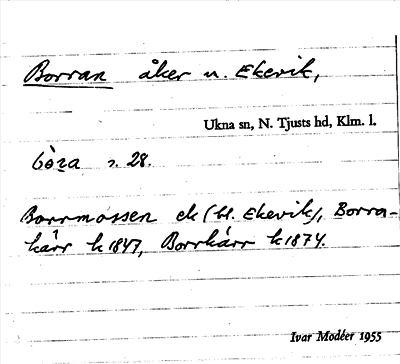 Borran åker u. Ekevik,
Ukna sn, N. Tjusts hd, Klm. l.
s. 28.
Borrmossen ek (bl. Ekevik), Borra-
kärr k 1847, Borrkärr k 1874.
Ivar Modéer 1955